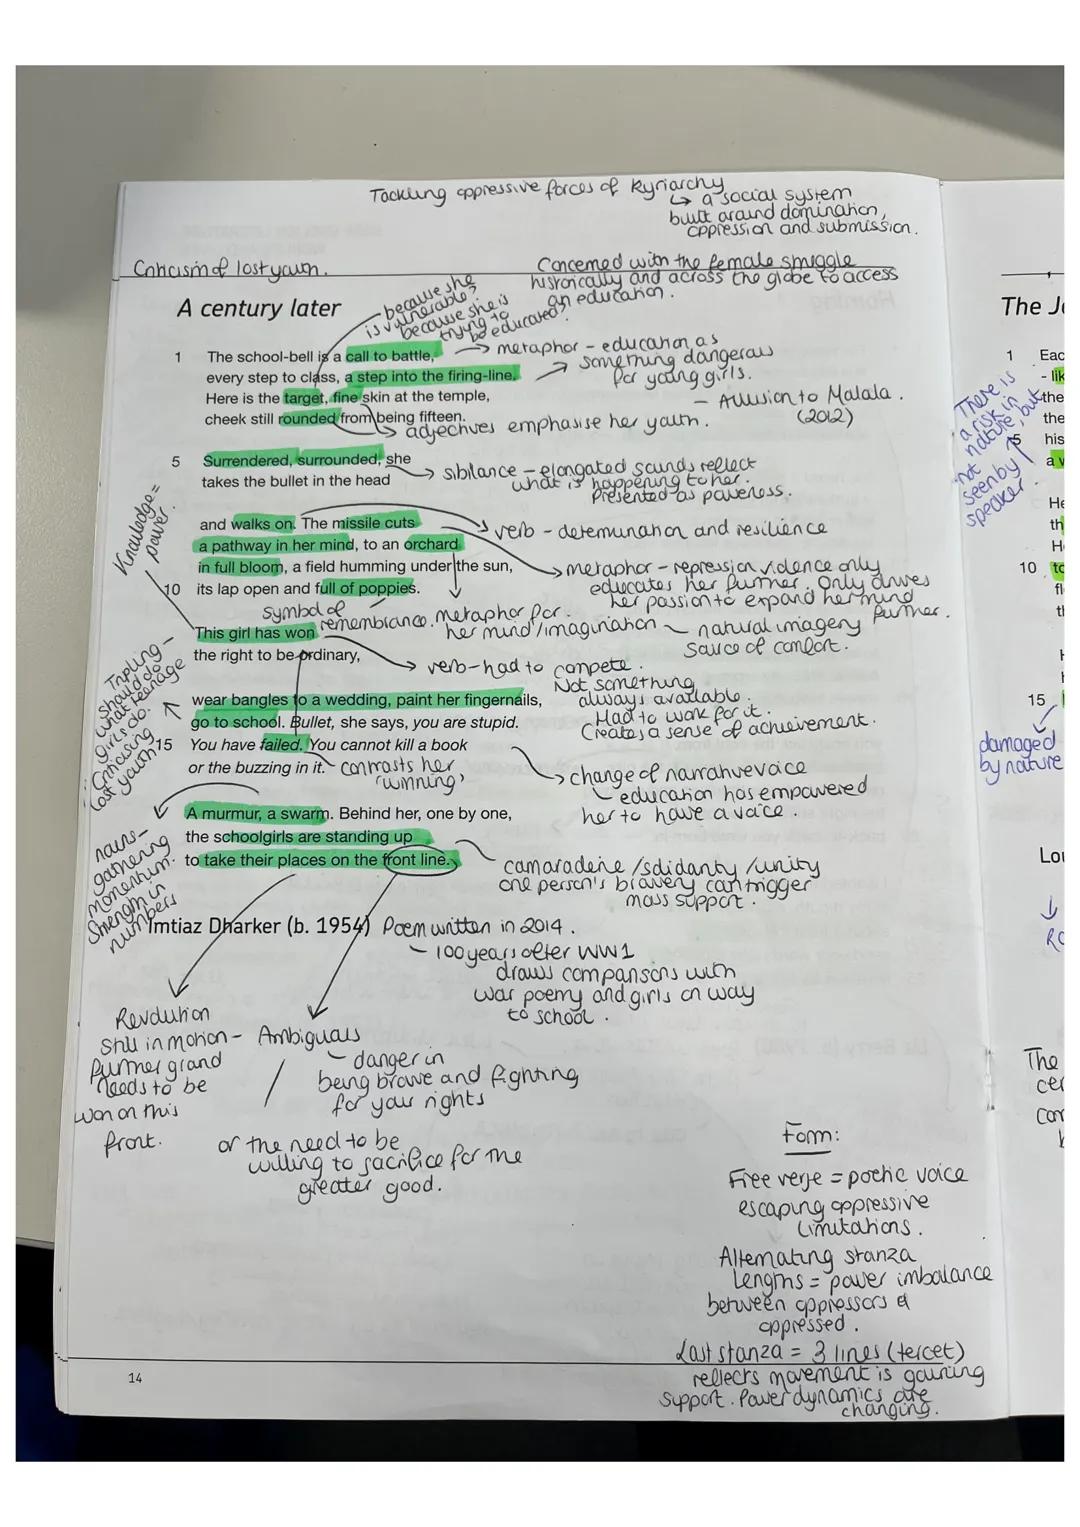 Tackling oppressive forces of Kyriarchy
↳ a social system
built around domination,
oppression and submission.
Criticism of lost youth.
Concerned with the female struggle
historically and across the globe to access
an education.
A century later
because she
is vulnerable?
because she is
trying to
be educated?
1 The school-bell is a call to battle,
every step to class, a step into the firing-line.
Here is the target, fine skin at the temple,
cheek still rounded from being fifteen.
→ metaphor - education as
something dangerous
for young girls.
- Allusion to Malala.
(2012)
adjectives emphasise her youth.
5 Surrendered, surrounded, she
takes the bullet in the head
→ sibilance - elongated sounds reflect
what is happening to her.
Presented as powerless.
and walks on. The missile cuts
a pathway in her mind, to an orchard
in full bloom, a field humming under the sun,
10 its lap open and full of poppies.
verb - determination and resilience
metaphor - repression, violence only
educates her further. Only drives
her passion to expand her mind
further.
symbol of
remembrance.
metaphor for
her mind/imagination
natural imagery
source of comfort.
Knowledge =
power.
This girl has won
the right to be ordinary,
→ verb - had to compete.
Not something
always available.
Had to work for it.
Creates a sense of achievement.
wear bangles to a wedding, paint her fingernails,
go to school. Bullet, she says, you are stupid.
15 You have failed. You cannot kill a book
or the buzzing in it.
contrasts her
'winning'
Tripling -
should do
what teenage
girls do.
Criticising
lost youth
change of narrative voice
education has empowered
her to have a voice.
A murmur, a swarm. Behind her, one by one,
the schoolgirls are standing up
to take their places on the front line.
nouns -
gathering
momentum.
Strength in
numbers
camaraderie /solidarity /unity
one person's bravery can trigger
mass support.
Imtiaz Dharker (b. 1954) Poem written in 2014.
- 100 years after WW1
draws comparisons with
war poetry and girls on way
to school.
Revolution
still in motion -
further grand
needs to be
won on this
front.
Ambiguous
danger in
being brave and fighting
for your rights
/
or the need to be
willing to sacrifice for the
greater good.
Form:
Free verse = poetic voice
escaping oppressive
limitations.
Alternating stanza
lengths = power imbalance
between oppressors &
oppressed.
Last stanza = 3 lines (tercet)
reflects movement is gaining
support. Power dynamics are
changing.
14
The J
1 Eac
- lik
the
the
5 his
a
There is
a risk in
nature, but
not
seen by
speaker.
He
th
H
10 to
fl
th
15
damaged
by nature
Lou
The
cer
con